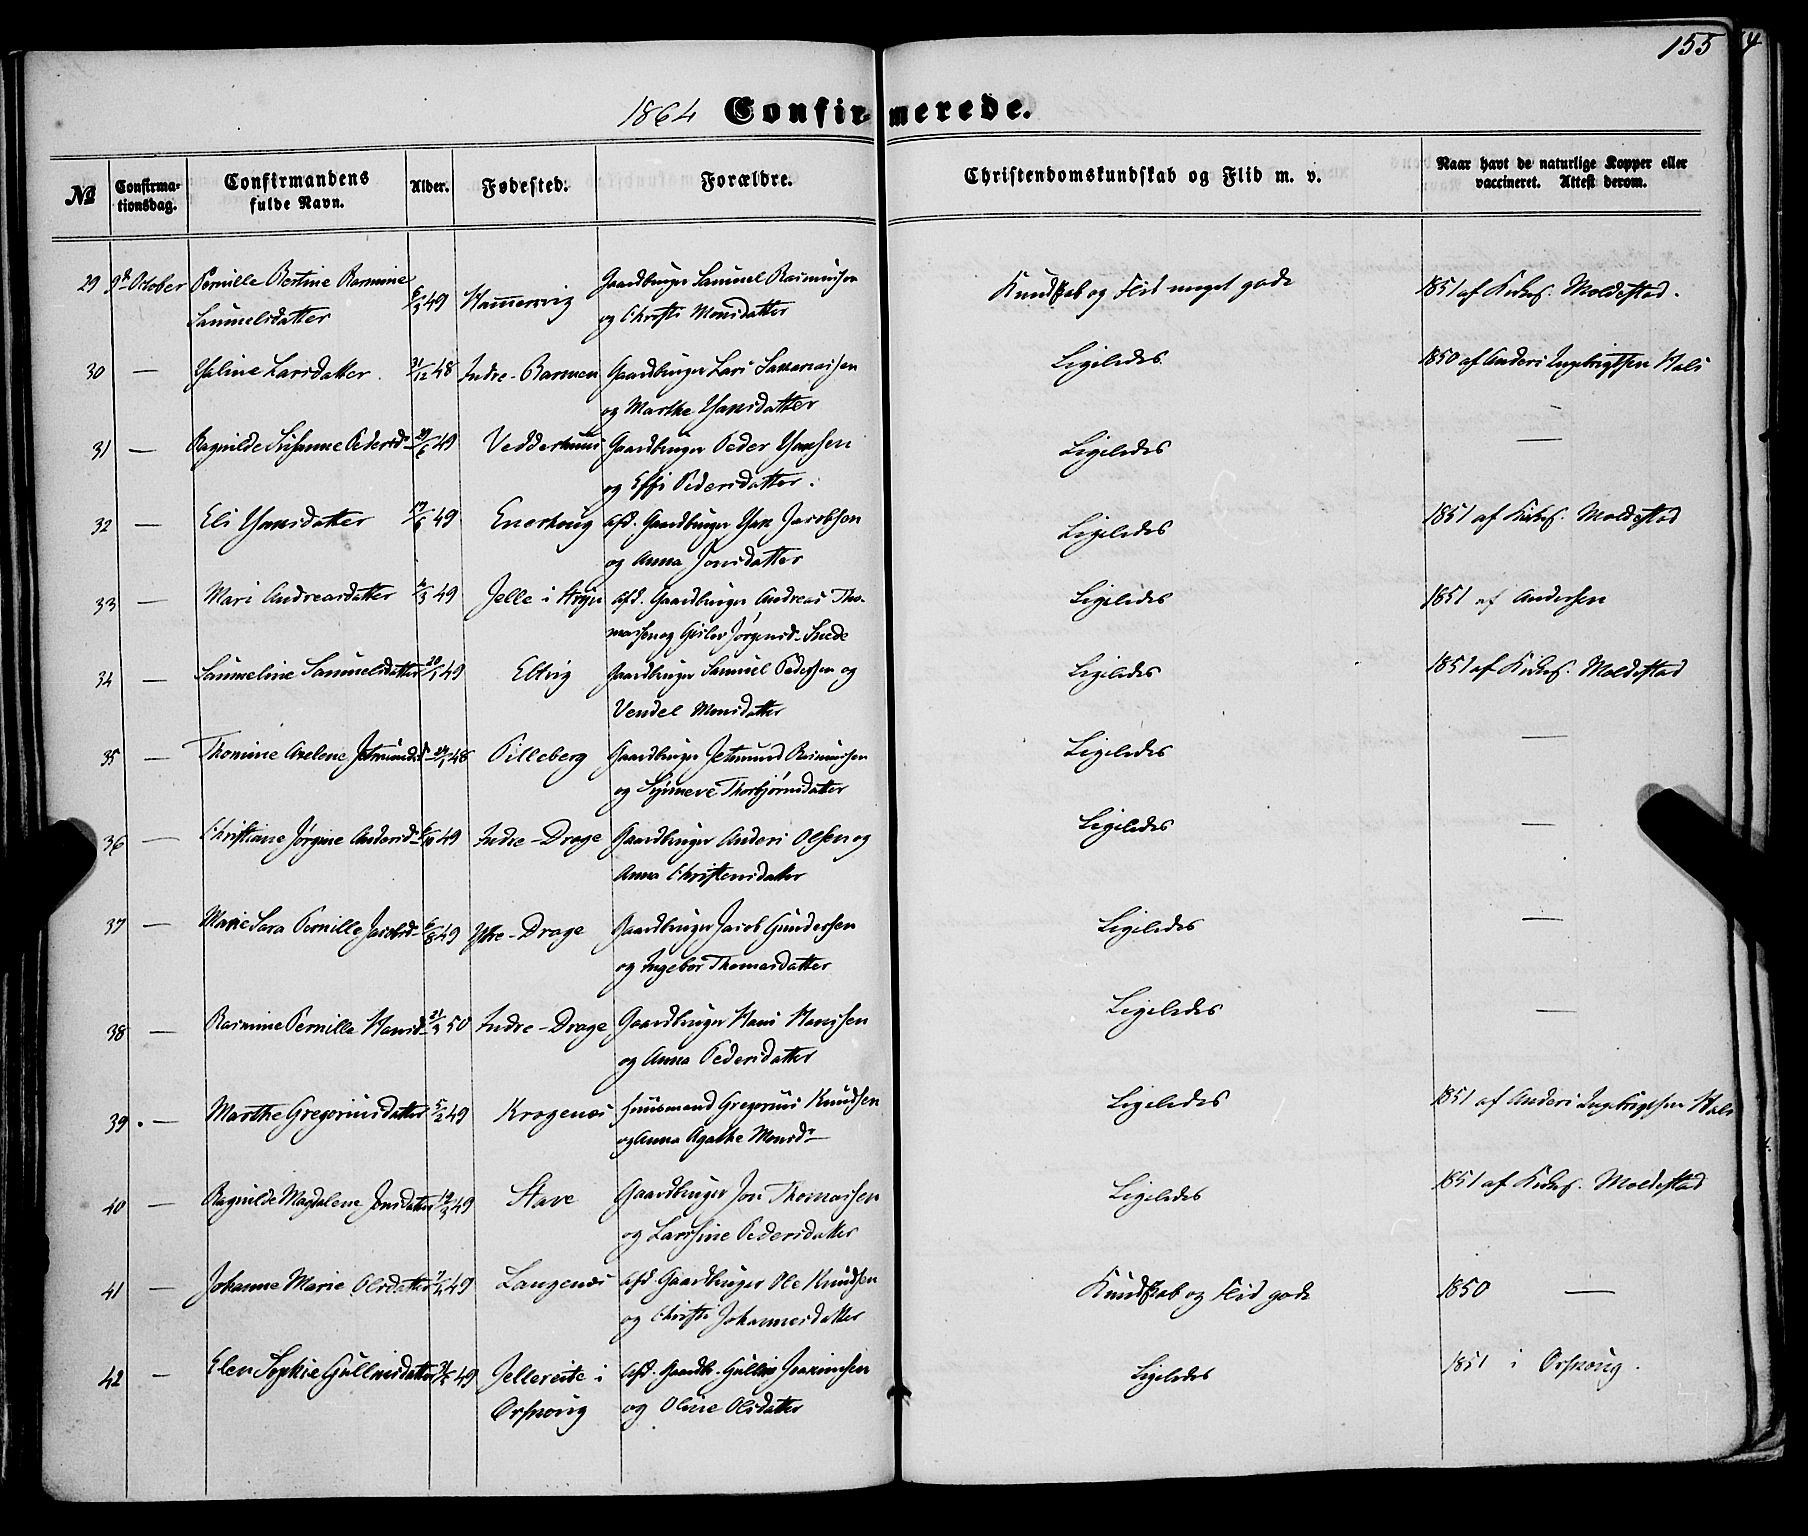 155
1864 Confirmerede.
№ Confirma-tionsdag. Confirmandens fulde Navn. Alder. Fødested. Forældre. Christendomskundskab og Flid m. v. Naar havt de naturlige Kopper eller vaccineret. Attest derom.
29 9de October Pernille Bertine Rasmine 6/3 49 Hammersvig Gaardbruger Samuel Rasmussen Kundskab og Flid meget gode 1851 af Kirkes. Moldestad.
Samuelsdatter og Christi Monsdatter
30 — Haline Larsdatter 31/12 48 Indre-Barmen Gaardbruger Lars Ligeledes 1850 af Anders Ingebrigtsen Hals
og Marthe Hansdatter
31 — Ragnilde Susanne Pedersd- 29/6 49 Vedderhuus Gaardbruger Peder Hansen Ligeledes —
og Effi Pedersdatter.
32 — Eli Hansdatter 17/6 49 Enerhoug afd. Gaardbruger Han Jacobsen Ligeledes 1851 af Kirkes. Moldestad
og Anna Jonsdatter
33 — Mari Andreasdatter 49 Jelle i Stryn afd. Gaardbruger Andreas Tho- Ligeledes 1851 af Andersen
massen og Jørgensd-
34 — Samueline Samuelsdatter 20/1 49 Eltvig Gaardbruger Samuel Pedersen og Ligeledes 1851 af Kirkes. Moldestad
Vendel Monsdatter
35 — Thomine Axelene Jetmundsd- 48 Pilleberg Gaardbruger Jetmund Rasmussen Ligeledes —
og Synneve Thorbjørnsdatter
36 — Christiane Jørgine Andersd- 6/10 49 Indre-Drage Gaardbruger Anders Olsen og Ligeledes —
Anna Christensdatter
37 — Marie Sara Pernille Jacobsd- 6/8 49 Ytre-Drage Gaardbruger Jacob Gundersen Ligeledes —
og Ingebor Thomasdatter
38 — Rasmine Pernille Hansd- 21/3 50 Indre-Drage Gaardbruger Hans Hansen Ligeledes —
og Anna Pedersdatter
39. — Marthe Gregoriusdatter 5/2 49 Kragenes Huusmand Gregorius Knudsen Ligeledes 1851 af Anders Ingebrigtsen Hals
og Anna Agathe Monsdr
40 — Ragnilde Magdalene Jonsdatter 19/3 49 Stave Gaardbruger Jon Thomassen Ligeledes 1851 af Kirkes. Moldestad
og Larsine Pedersdatter
41 — Johanne Marie Olsdatter 49 Langenes afd. Gaardbruger Ole Knudsen Kundskab og Flid gode 1850 —
og Christi Johannesdatter
42 — Elen Sophie Gullinsdatter 49 Jellereite i afd. Gaardb. Gullin Joakimsen Ligeledes 1851 i Ørskoug.
Ørskoug og Oline Olsdatter